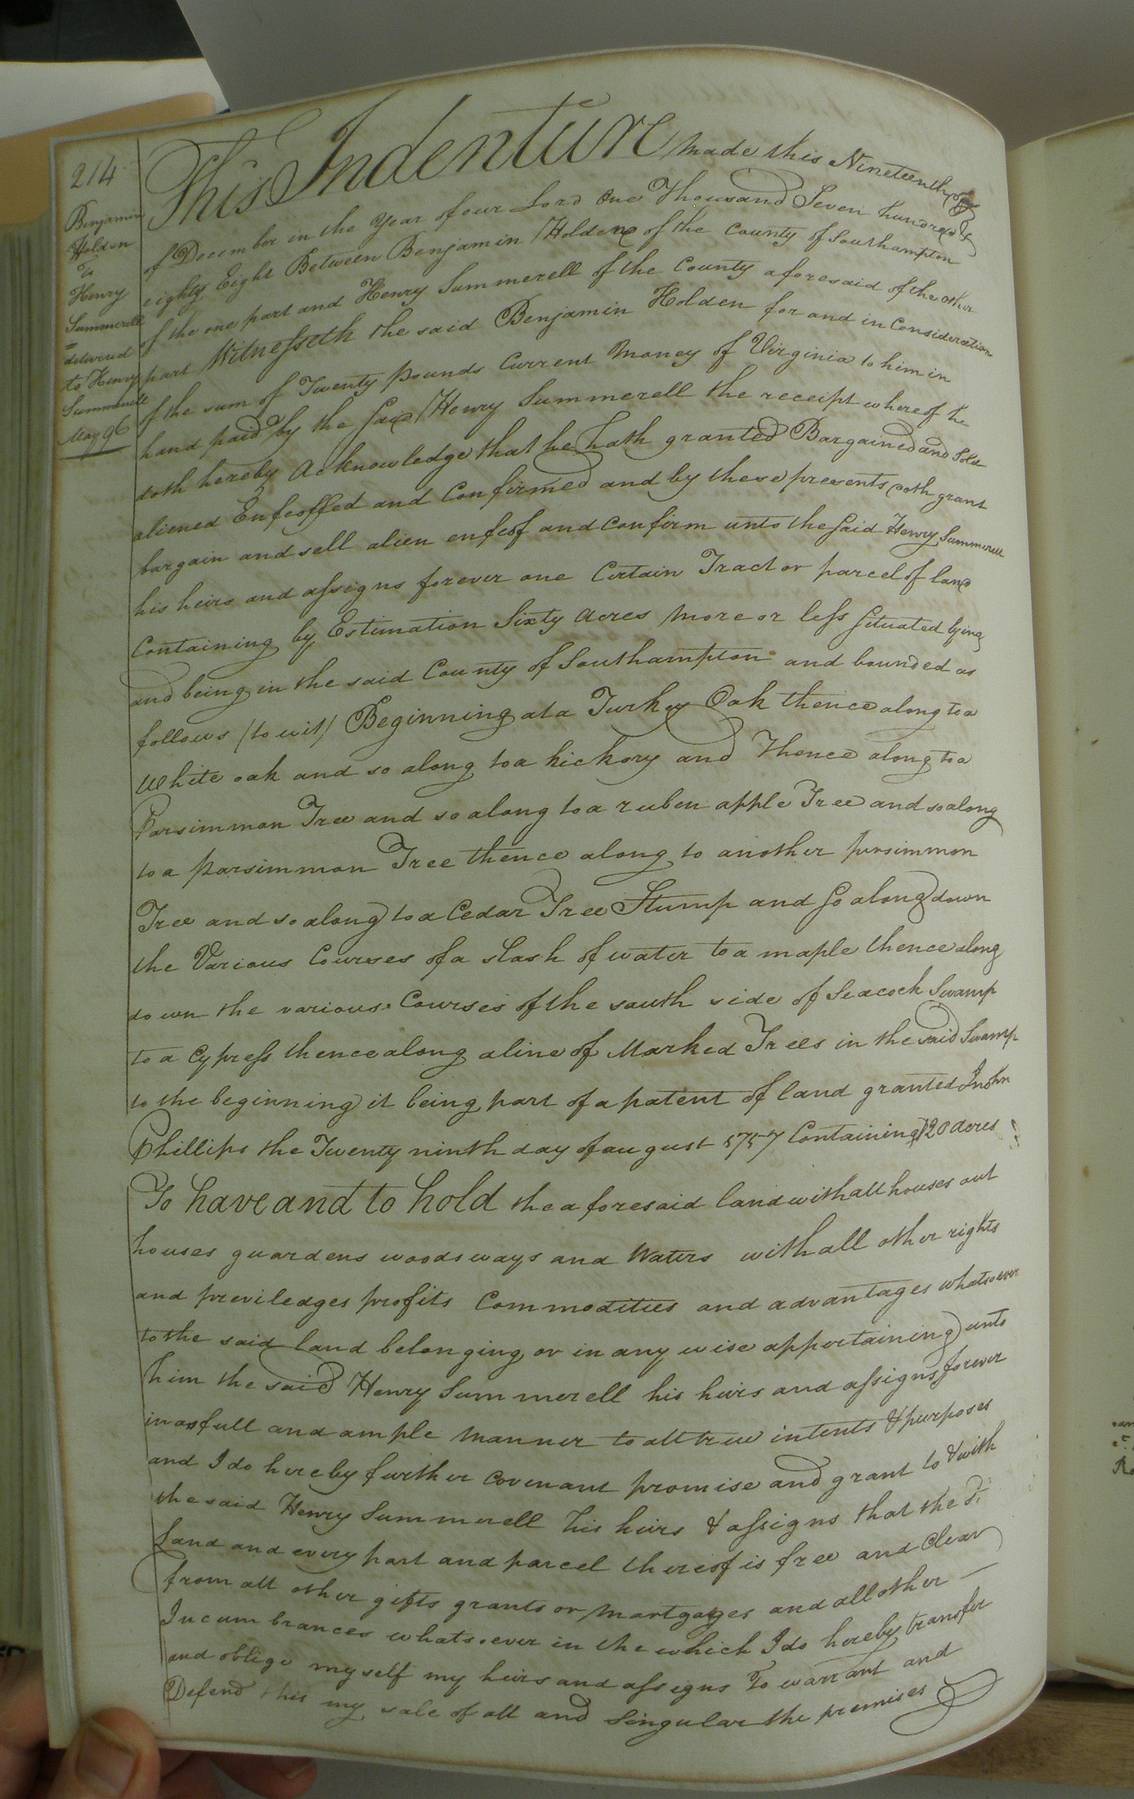 214
Benjamin
Holden
To
Henry
Summerell
delivered
to Henry
Summerell
May 96
This Indenture made this Nineteenth day
of December in the Year of our Lord One Thousand Seven hundred &
eighty Eight Between Benjamin Holden of the County of Southampton
of the one part and Henry Summerell of the County aforesaid of the other
part Witnesseth the said Benjamin Holden for and in Consideration
of the sum of Twenty pounds Current Money of Virginia to him in
hand paid by the said Henry Summerell the receipt whereof he
doth hereby Acknowledge that he hath granted Bargained and Sold
aliened Enfeoffed and Confirmed and by these presents doth grant
bargain and sell alien enfeof and Confirm unto the said Henry Summerell
his heirs and assigns forever one Certain Tract or parcel of land
Containing by Estimation Sixty acres more or less situated lying
and being in the said County of Southampton and bounded as
follows (to wit) Beginning at a Turkey Oak thence along to a
White oak and so along to a hickory and Thence along to a
Parsimmon Tree and so along to a ruben apple Tree and so along
to a parsimmon Tree thence along to another persimmon
Tree and so along to a Cedar Tree Stump and so along down
the Various Courses of a Slash of water to a maple thence along
down the various Courses of the south side of Seacock Swamp
to a Cypress thence along a line of Marked Trees in the said Swamp
to the beginning it being part of a patent of land granted John
Phillips the Twenty ninth day of august 1757 Containing 120 acres
To have and to hold the aforesaid land with all houses out
houses guardens woods ways and Waters with all other rights
and previledges profits Commodities and advantages whatsoever
to the said land belonging or in any wise appertaining unto
him the said Henry Summerell his heirs and assigns forever
in as full and ample manner to all true intents & purposes
and I do hereby further Covenant promise and grant to & with
the said Henry Summerell his heirs & assigns that the sd.
Land and every part and parcel thereof is free and Clear
from all other gifts grants or Mortgages and all other
Incumbrances whatsoever in the which I do hereby transfer
and oblige myself my heirs and assigns To warrant and
Defend this my sale of all and Singular the premises